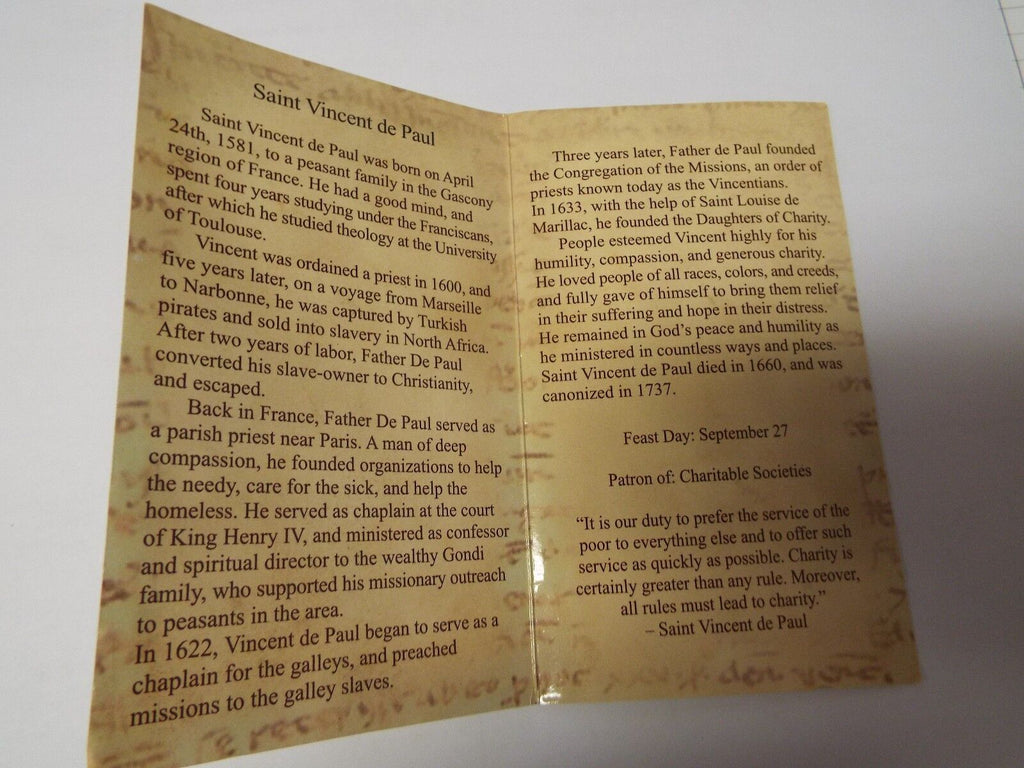 Saint Vincent de Paul
Saint Vincent de Paul was born on April
24th, 1581, to a peasant family in the Gascony
region of France. He had a good mind, and
spent four years studying under the Franciscans,
after which he studied theology at the University
of Toulouse.
Vincent was ordained a priest in 1600, and
five years later, on a voyage from Marseille
to Narbonne, he was captured by Turkish
pirates and sold into slavery in North Africa.
After two years of labor, Father De Paul
converted his slave-owner to Christianity,
and escaped.
Back in France, Father De Paul served as
a parish priest near Paris. A man of deep
compassion, he founded organizations to help
the needy, care for the sick, and help the
homeless. He served as chaplain at the court
of King Henry IV, and ministered as confessor
and spiritual director to the wealthy Gondi
family, who supported his missionary outreach
to peasants in the area.
In 1622, Vincent de Paul began to serve as a
chaplain for the galleys, and preached
missions to the galley slaves.
Three years later, Father de Paul founded
the Congregation of the Missions, an order of
priests known today as the Vincentians.
In 1633, with the help of Saint Louise de
Marillac, he founded the Daughters of Charity.
People esteemed Vincent highly for his
humility, compassion, and generous charity.
He loved people of all races, colors, and creeds,
and fully gave of himself to bring them relief
in their suffering and hope in their distress.
He remained in God's peace and humility as
he ministered in countless ways and places.
Saint Vincent de Paul died in 1660, and was
canonized in 1737.
Feast Day: September 27
Patron of: Charitable Societies
“It is our duty to prefer the service of the
poor to everything else and to offer such
service as quickly as possible. Charity is
certainly greater than any rule. Moreover,
all rules must lead to charity.”
– Saint Vincent de Paul